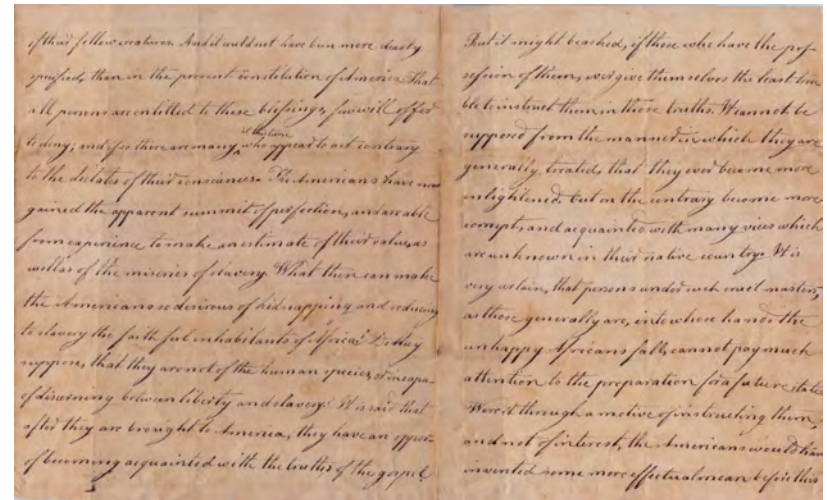 of their fellow creatures. And it would not have been more clearly
specified, than in the present constitution of America. That
all persons are entitled to these blessings, few will offer
to deny; and if so there are many at this time who appear to act contrary
to the dictates of their consciences. The Americans have now
gained the apparent summit of perfection, and are able
from experience to make an estimate of their value, as
well as of the miseries of slavery. What then can make
the Americans so desirous of kidnapping and reducing
to slavery the faithful inhabitants of Africa? Do they
suppose, that they are not of the human species, or incapa-
of discerning between liberty and slavery? It is said that
after they are brought to America, they have an oppor-
of becoming acquainted with the truths of the gospel.
But it might be asked, if those who have the pos-
session of them, ever give themselves the least trou-
ble to instruct them in those truths. It cannot be
supposed from the manner in which they are
generally treated, that they ever become more
enlightened, but on the contrary become more
corrupt, and acquainted with many vices which
are unknown in their native country. It is
very certain, that persons under such cruel masters,
as those generally are, into whose hands the
unhappy Africans fall, cannot pay much
attention to the preparation for a future state.
Were it through a motive of instructing them,
and not of interest, the Americans would have
invented some more effectual mean before this